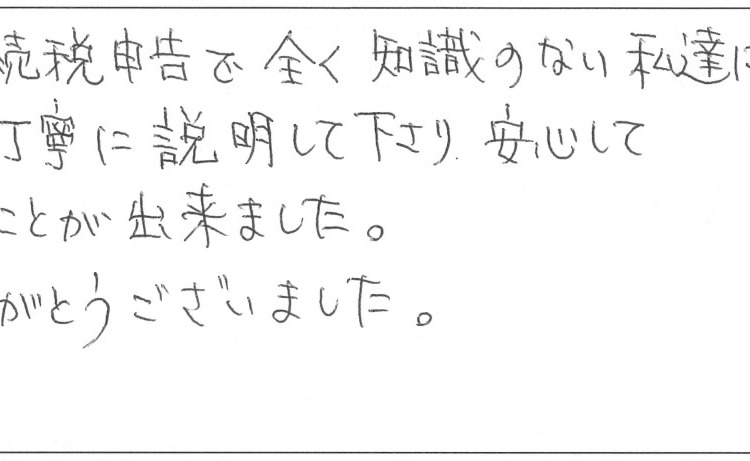 続税申告で 全く 知識のない 私達に
丁寧に 説明して下さり 安心して
ことが 出来ました。
がとうございました。